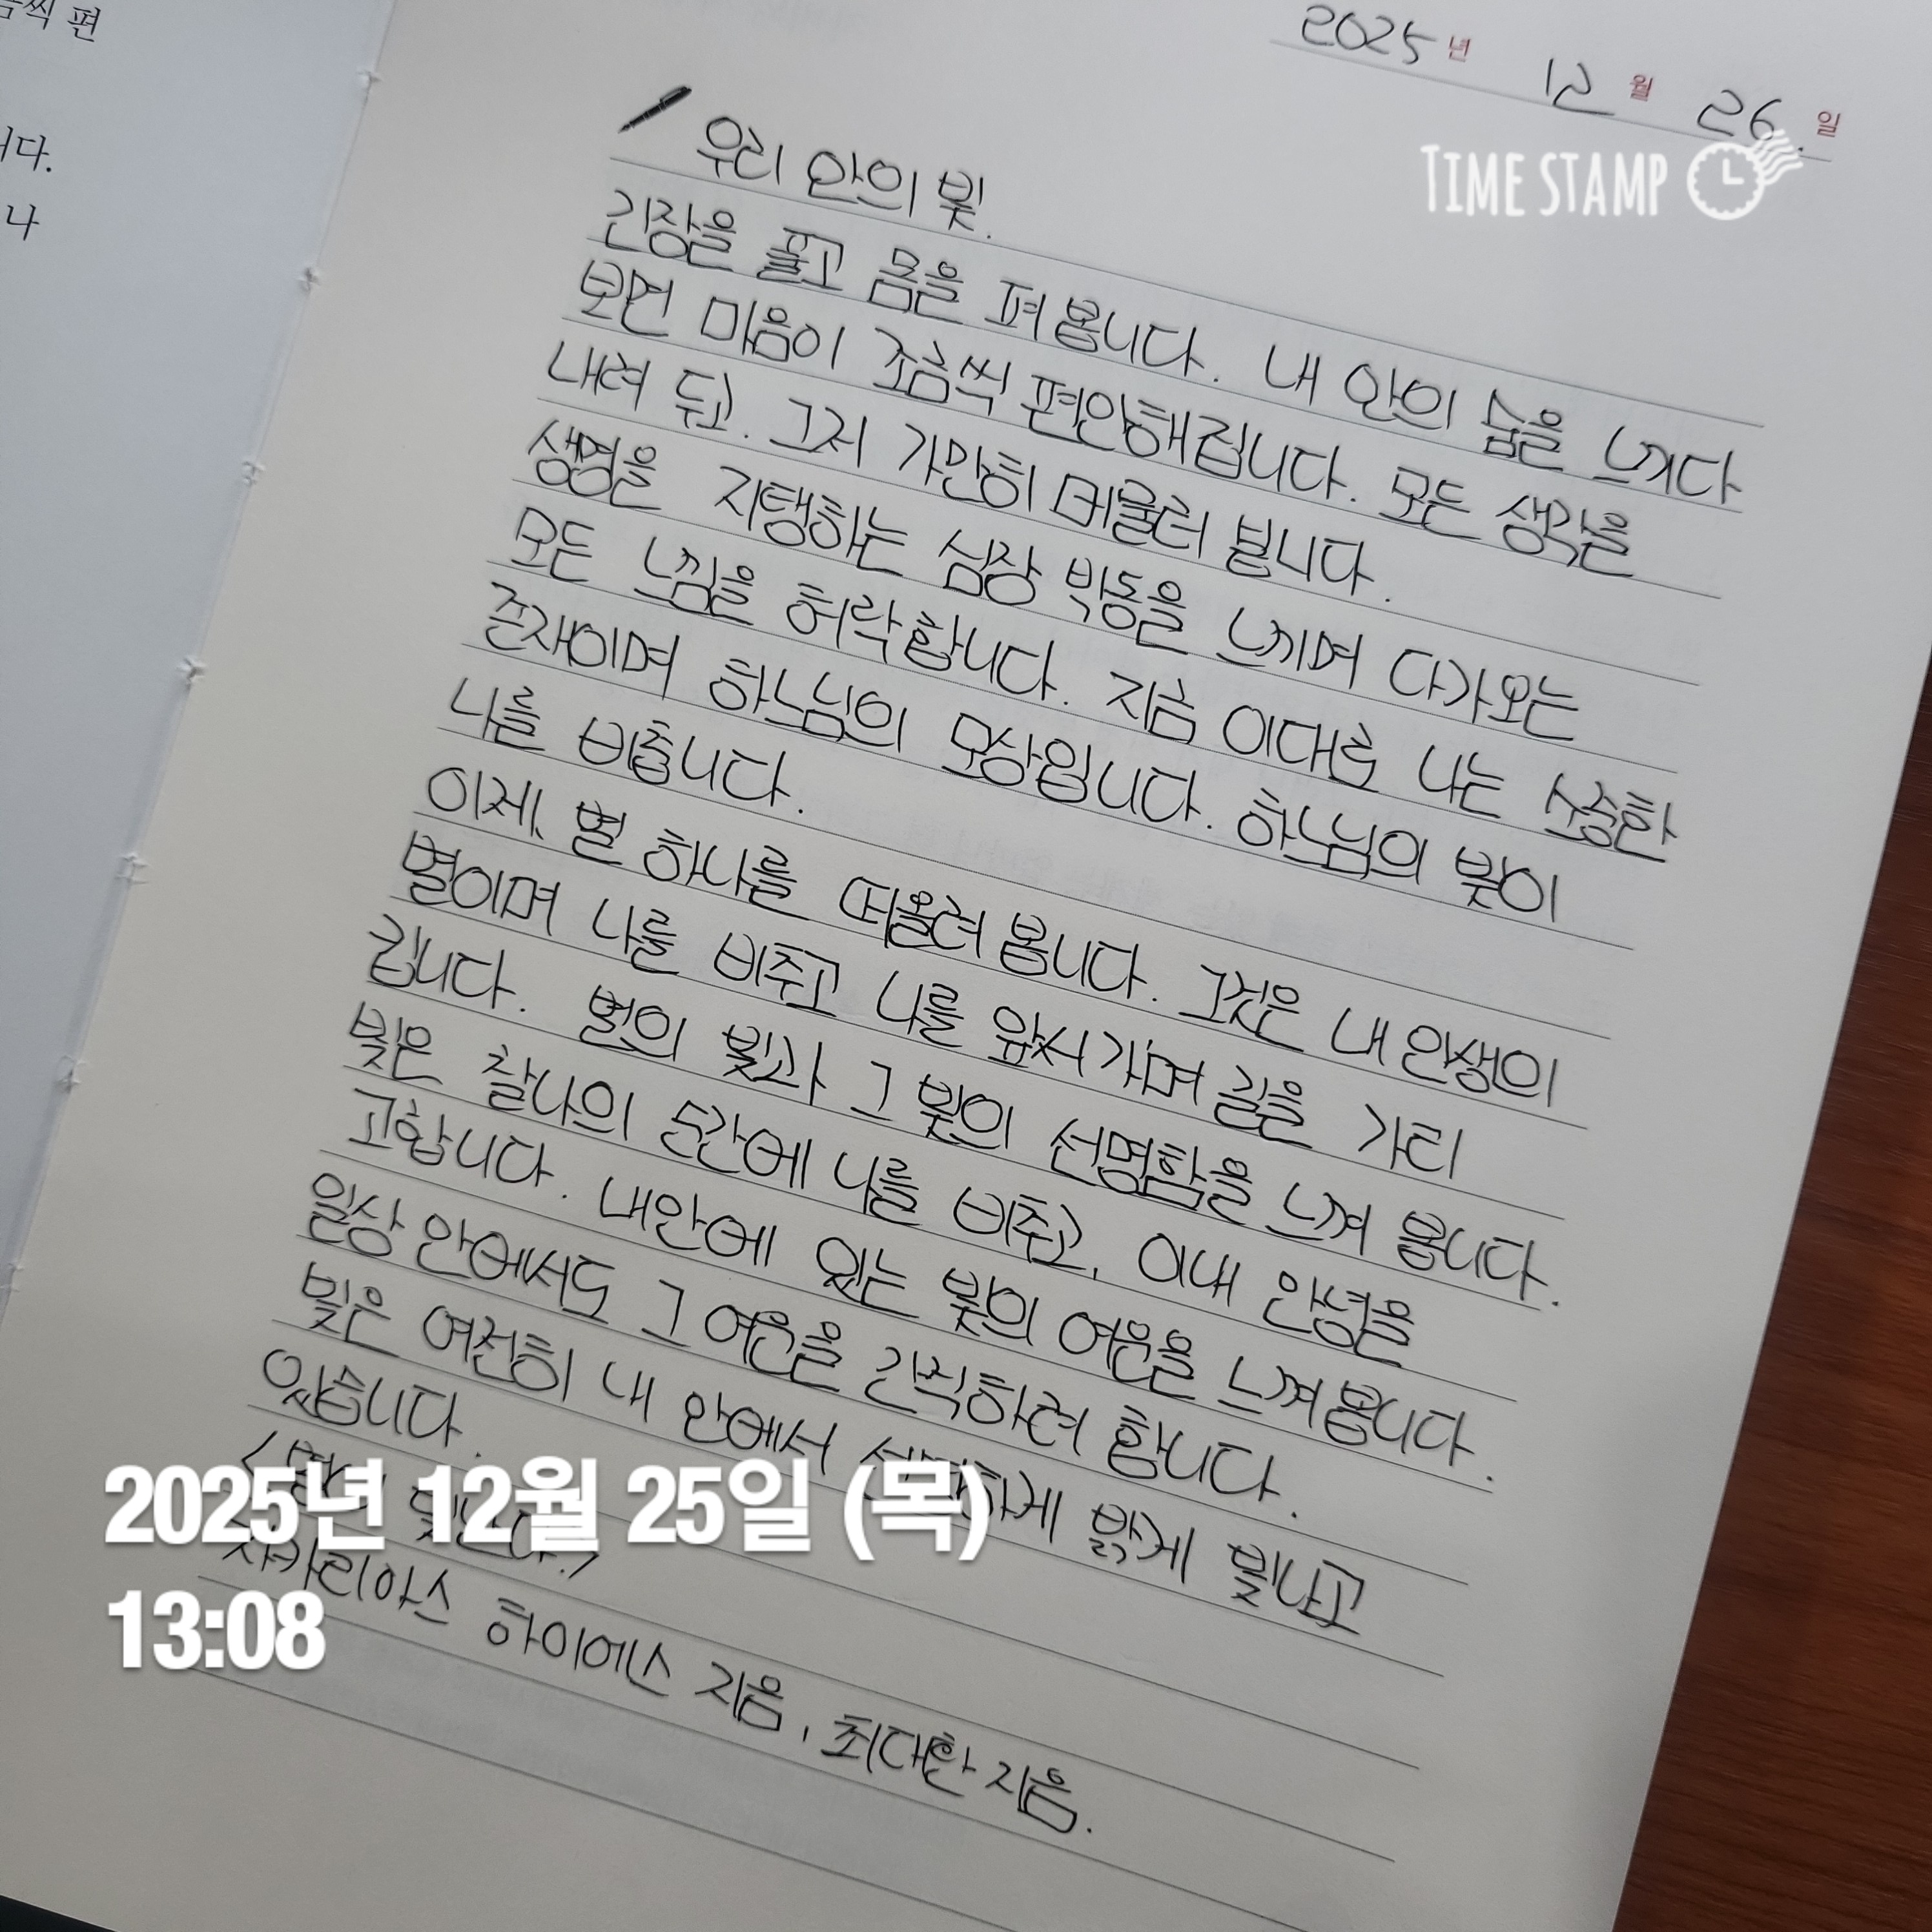 금씩 편
니다.
나
2025년 12월 26.일
TIME STAMP
우리 안의 빛.
긴장을 풀고 몸을 펴 봅니다. 내 안의 숨을 느끼다
보면 마음이 조금씩 편안해집니다. 모든 생각을
내려 두고. 그저 가만히 머물러 봅니다.
생명을 지탱하는 심장 박동을 느끼며 다가오는
모든 느낌을 허락합니다. 지금 이대로 나는 소중한
존재이며 하느님의 모상입니다. 하느님의 빛이
나를 비춥니다.
이제, 별 하나를 떠올려 봅니다. 그것은 내 인생의
별이며 나를 비추고 나를 앞서 가며 길을 가리
킵니다. 별의 빛과 그 빛의 선명함을 느껴 봅니다.
빛은 찰나의 순간에 나를 비추고, 이내 안녕을
고합니다. 내안에 있는 빛의 여운을 느껴봅니다.
일상 안에서도 그 여운을 간직하려 합니다.
빛은 여전히 내 안에서 선명하게 밝게 빛나고
있습니다.
2025년 12월 25일 (목)
자카리아스 하이에스 지음, 최대환 지음.
13:08